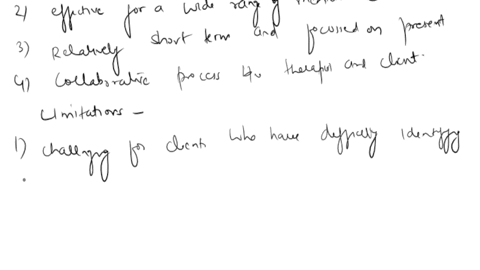 2) effective for a wide rang
3) Relatively short term and focussed on present
4) Collaborative process b/w therapist and client.
Limitations -
1) Challenging for clients who have difficulty identifying